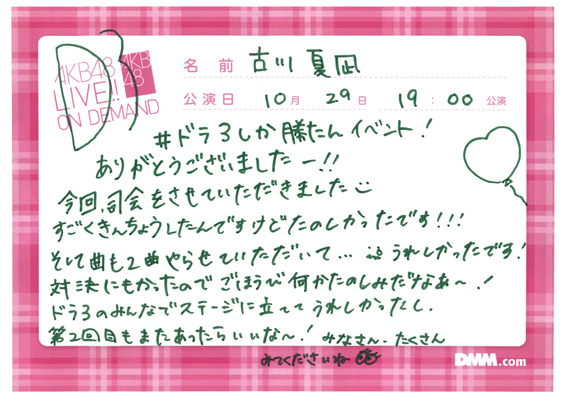 AKB48
LIVE!!
ON DEMAND
AKB
48
名前 古川夏凪
公演日 10月 29日 19:00公演
#ドラ3しか勝たんイベント!
ありがとうございましたー!!
今回、司会をさせていただきました
すごくきんちょうしたんですけどたのしかったです!!!
そして曲も2曲やらせていただいて... うれしかったです!
対決にもかったのでごほうび何かたのしみだなあ〜!
ドラ3のみんなでステージに立ててうれしかったし、
第2回目もまたあったらいいな〜! みなさん、たくさん
みてくださいね
DMM.com